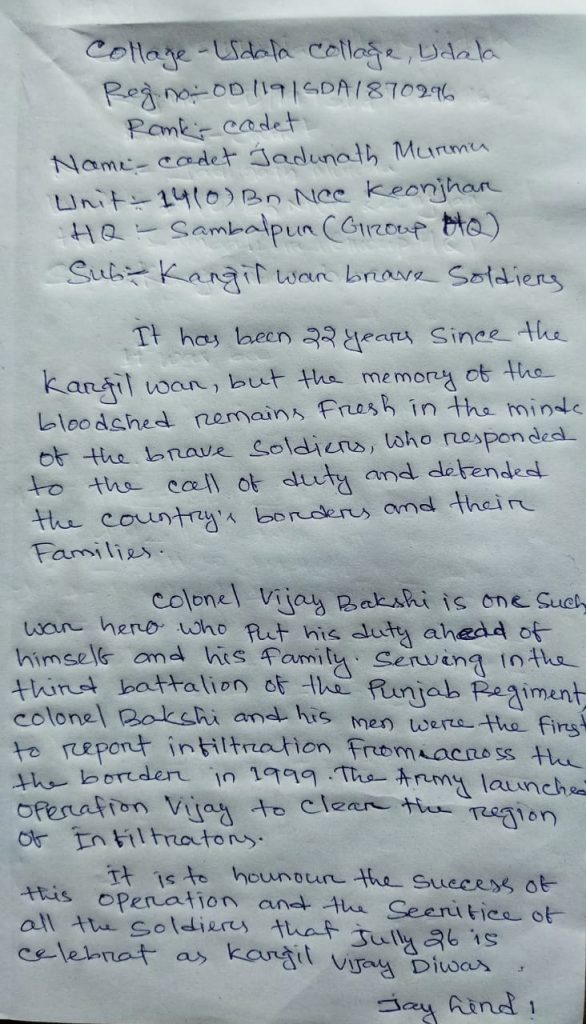 Collage - Udala collage, Udala
Reg.no:- OD/19/SDA/870296
Rank:- cadet
Name:- cadet Jadunath Murmu
Unit:- 14(O) Bn NCC Keonjhar
HQ :- Sambalpur (Group HQ)
Sub:- Kargil war brave Soldiers
It has been 22 years Since the
Kargil war, but the memory of the
bloodshed remains Fresh in the minds
of the brave Soldiers, who responded
to the call of duty and defended
the country's borders and their
Families.
Colonel Vijay Bakshi is one Such
war hero who Put his duty ahead of
himself and his Family. Serving in the
third battalion of the Punjab Regiment,
colonel Bakshi and his men were the first
to report infiltration From across the
the border in 1999. The Army launched
Operation Vijay to clear the region
of Infiltrators.
It is to hounour the Success of
this operation and the Secrifice of
all the Soldiers that Jully 26 is
celebrat as Kargil Vijay Diwas.
Jay hind!